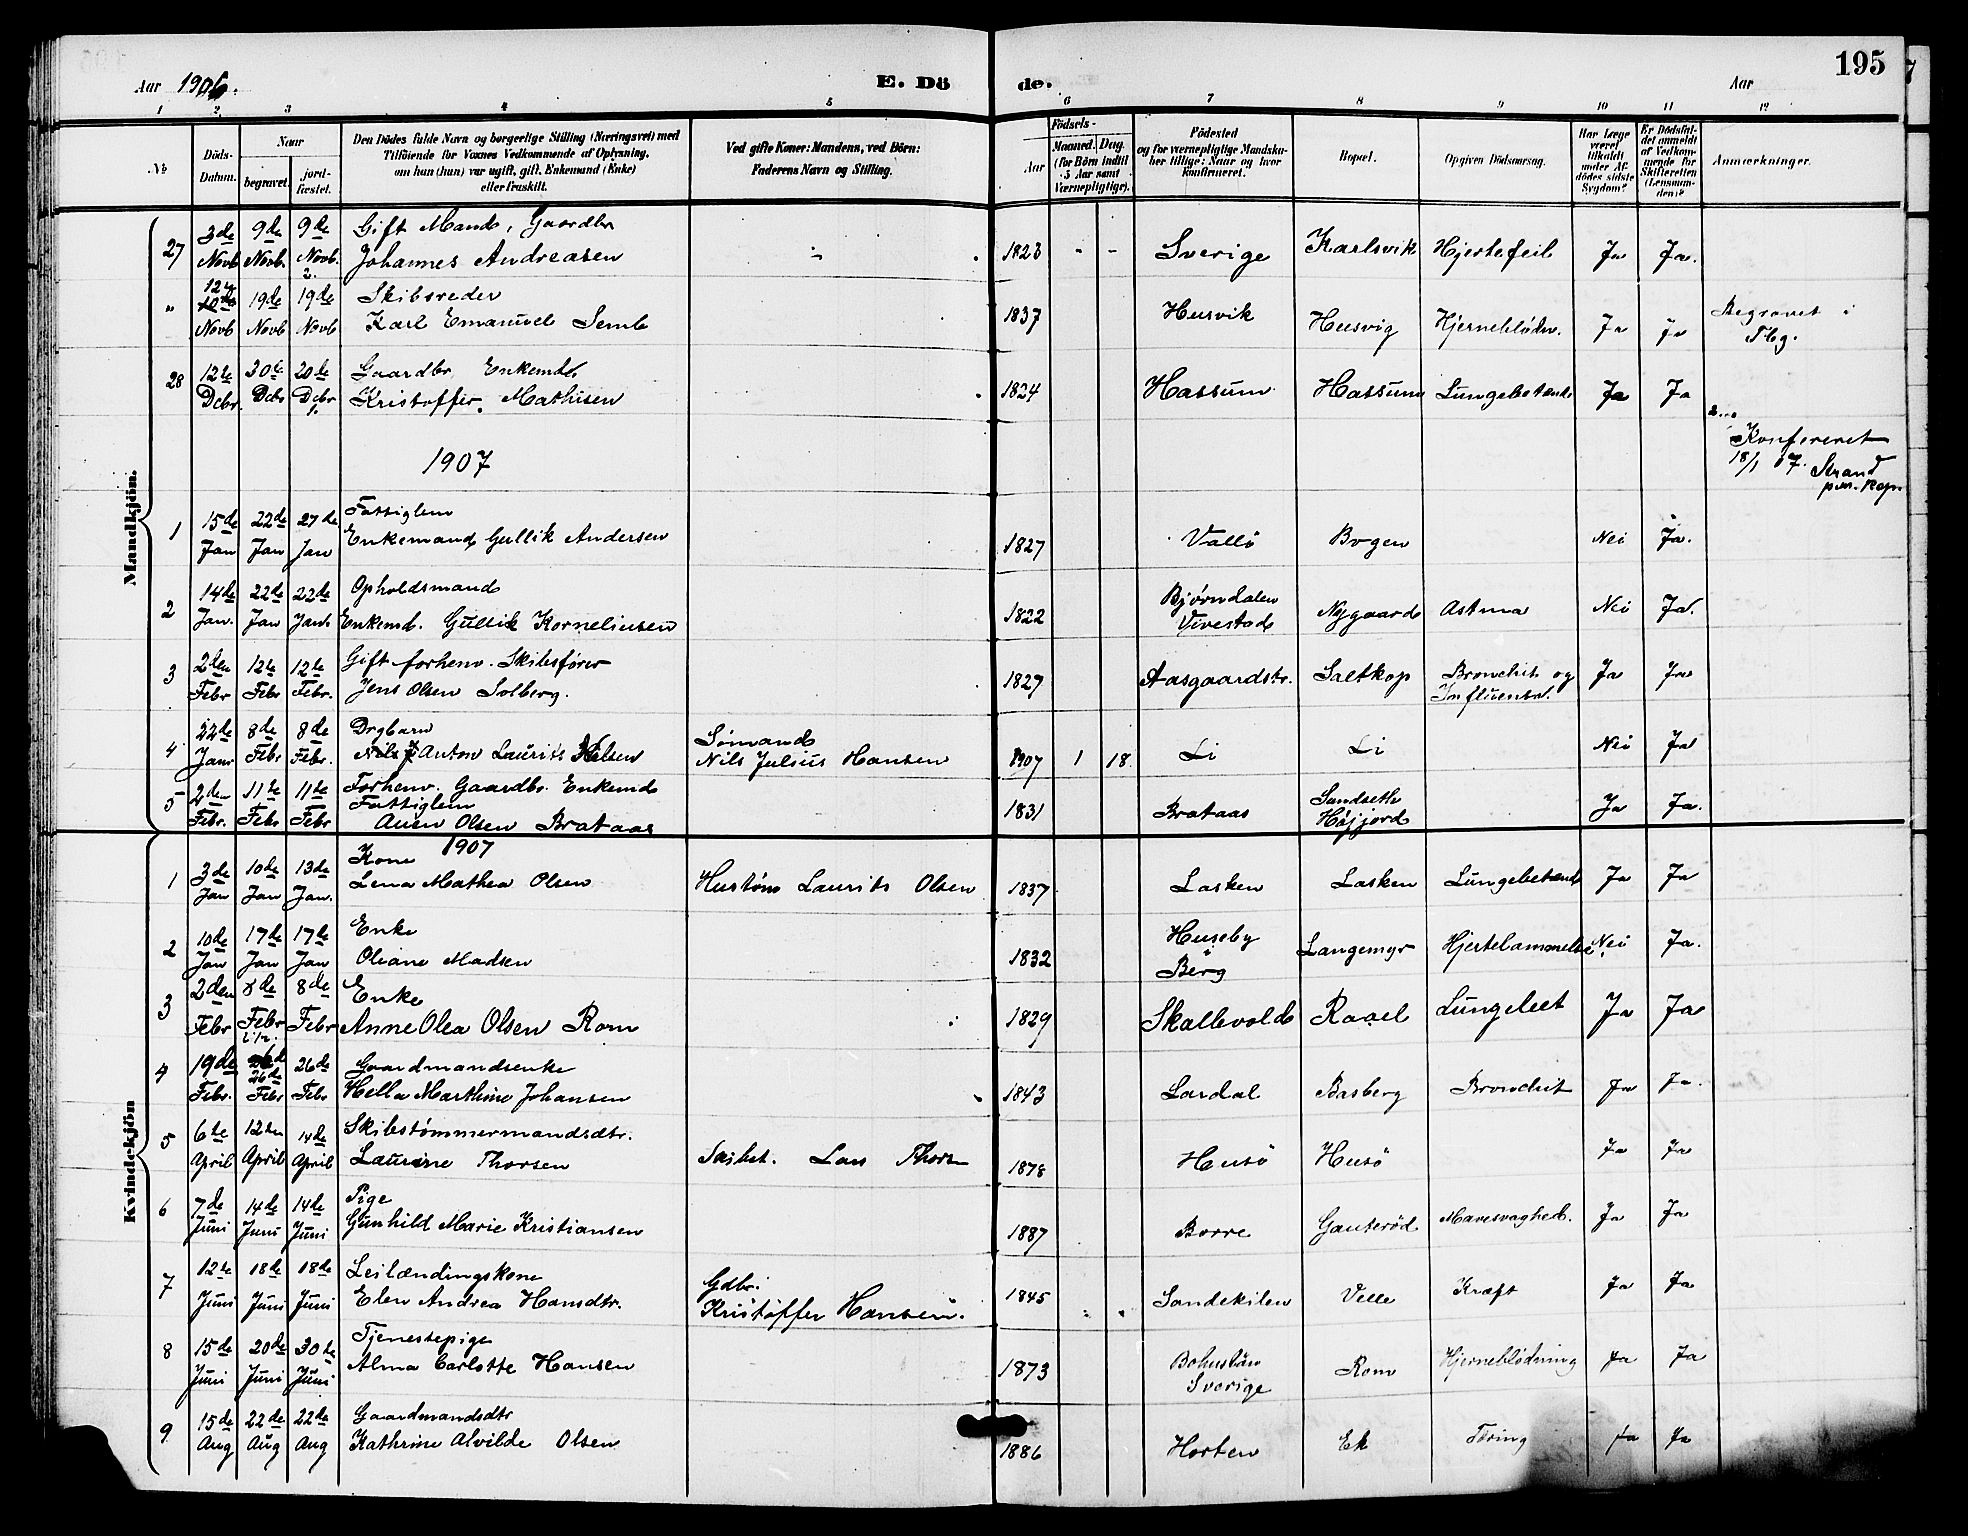 195
Aar 1906.
E. Dö
de.
Aar
1 2 3 4 5 6 7 8 9 10 11 12
No
Döds-Datum.
Naar
begravet.
jord-fæstet.
Den Dödes fulde Navn og borgerlige Stilling (Næringsvei) med
Tilföiende for Voxnes Vedkommende af Oplysning,
om han (hun) var ugift, gift, Enkemand (Enke)
eller fraskilt.
Ved gifte Koner: Mandens, ved Börn:
Faderens Navn og Stilling.
Födsels-
Aar
Maaned. Dag.
(for Börn indtil
5 Aar samt
Værnepligtige).
Födested
og for værnepligtige Mandska-
ber tillige: Naar og hvor
konfirmeret.
Bopæl.
Opgiven Dödsaarsag.
Har Læge
været
tilkaldt
under Af-
dödes sidste
Sygdom?
Er Dödsfal-
det anmeldt
af Vedkom-
mende for
Skifteretten
(Lensman-
den)?
Anmærkninger.
Mandkjön.
27 3de Novb 9de Novb. 9de Novb. Gift Mand, Gaardbr
Johannes Andreasen 1823 - - Sverige Karlsvik Hjertefeil Ja Ja.
" 12te Novb 19de Novb 19de Novb Skibsreder
Karl Emanuel Semb 1837 Husvik Husvig Hjerneblødn. Ja Ja Begravet i
Tbg.
28 12te Decbr. 30te Decbr 20de Decbr Gaardbr. Enkemd
Kristoffer Mathisen 1824 Hassum Hassum Lungebetænd Ja Ja
Konfereret
18/1 07. Strand
pers. kap.
1907
1 15de Jan 22de Jan 27de Jan Fattiglem
Enkemand Gullik Andersen 1827 Vallö Bogen Nei Ja.
2 14de Jan. 22de Jan 22de Jan. Opholdsmand
Enkemd. Gullik Korneliusen 1822 Bjørndalen
Vivestad Nygaard Astma Nei Ja.
3 2den Febr 12te Febr 12te Febr. Gift forhenv. Skibsfører
Jens Olsen Solberg. 1827 Aasgaardstr. Saltkop Bronchit og
Influensa. Ja Ja
4 22de Jan 8de Febr 8de Febr. Drgbarn
Nils Anton Laurits Nilsen Sømand
Nils Julius Hansen 1907 1 18. Li Li Nei Ja
5 2den Febr. 11te Febr 11te Febr Forhenv. Gaardbr. Enkemd
Fattiglem
Auen Olsen Brataas 1831 Brataas Sandseth
Høijjord Ja Ja.
Kvindekjön
1907
1 3de Jan 10de Jan 13de Jan. Kone
Lena Mathea Olsen Hustøm Laurits Olsen 1837 Lasken Lasken Lungebetænd Ja Ja
2 10de Jan 17de Jan 17de Jan Enke
Oliane Madsen 1832 Huseby
i
Berg Langemyr Hjertelammelse Nei Ja.
3 2den Febr 8de Febr 8de Febr Enke
Anne Olea Olsen Rom 1829 Skallevold Raael Lungebet Ja Ja
4 19de Febr. 26de Febr 26de Febr Gaardmandsenke
Hella Marthine Johansen 1843 Lardal Basberg Bronchit Ja Ja.
5 6te April 12ten April 14de April Skibstømmermandsdtr.
Laurine Thorsen Lars Thors 1878 Husö Husö Ja Ja
6 7de Juni 14de Juni 14de Juni Pige
Gunhild Marie Kristiansen 1887 Borre Gauterød Mavesvaghed. Ja Ja
7 12te Juni 18de Juni 18de Juni Leilændingskone
Elen Andrea Hansdtr. Gdbr.
Kristoffer Hansen. 1845 Sandekilen Velle Kræft Ja Ja
8 15de Juni 20de Juni 30te Juni Tjenestepige
Alma Carlotte Hansen 1873 Bohuslän
Sverige Rom Hjerneblödning Ja Ja
9 15de Aug 22de Aug 22de Aug Gaardmandsdtr
Kathrine Alvilde Olsen 1886 Horten Ek Tæring Ja Ja